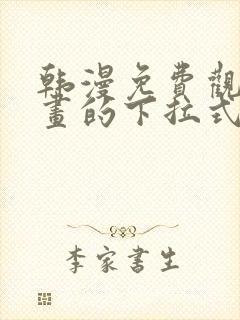 韩漫免費觀
畫的下拉式
李家書生